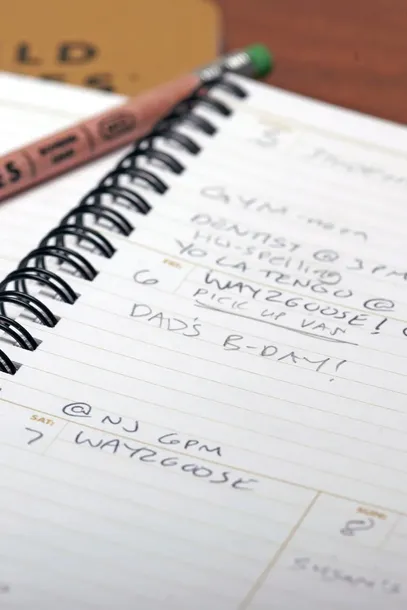 LD
ES
5
GYM - noon
DENTIST @ 3PM
HW-spelling
YO LA TENGO @
FRI:
6
WAYZGOOSE!
PICK UP VAN
DAD'S B-DAY!
@ NJ 6PM
SAT:
7
WAYZGOOSE
SUN:
8
SUSAN'S